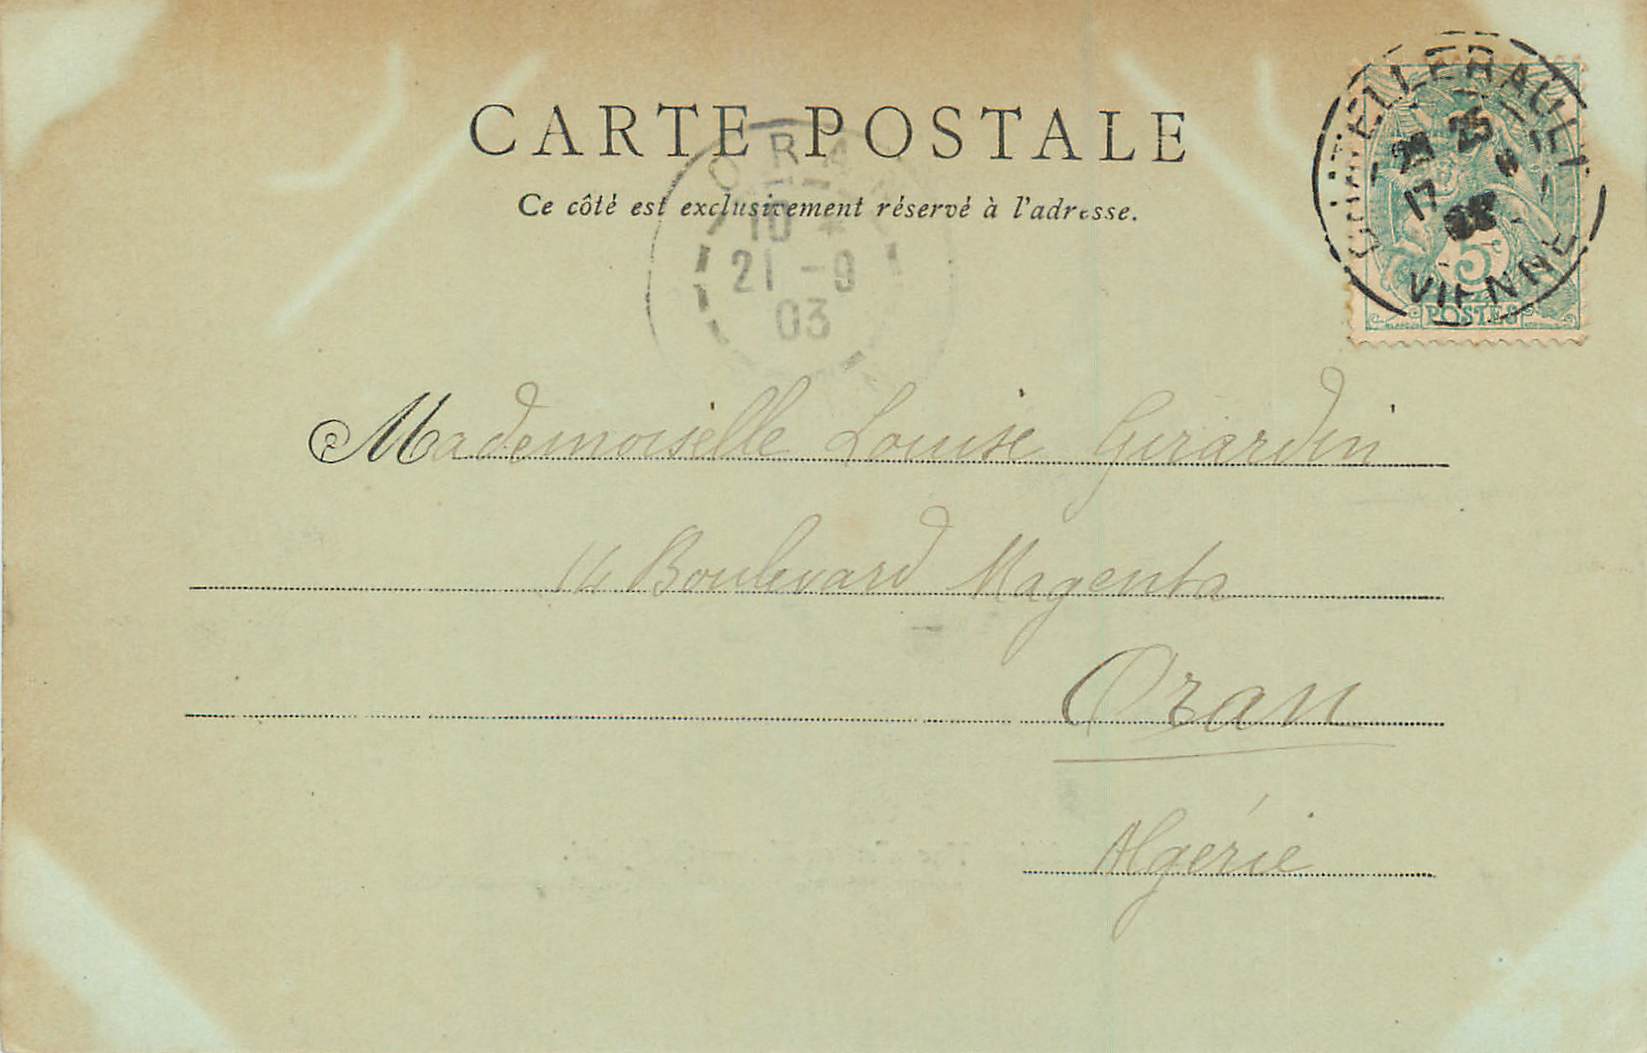 CARTE POSTALE
Ce côté est exclusivement réservé à l'adresse.
ORAN
10 *
21 -9
03
CHATELLERAULT
17
VIENNE
5
POSTES
Mademoiselle Louise Girardin
14 Boulevard Magenta
Oran
Algérie